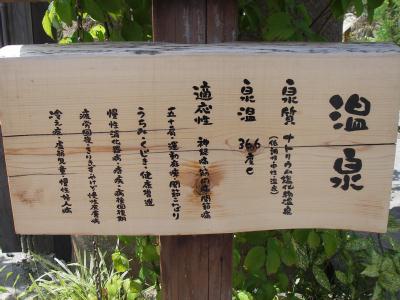 温泉
泉質 ナトリウム塩化物温泉
(低調性中性温泉)
泉温 36.6度C
適応性 神経痛・筋肉痛・関節痛
五十肩・運動麻痺・関節こわばり
うちみ・くじき・健康増進
慢性消化器病・痔疾・病後回復期
疲労回復・きりきず・やけど・慢性皮膚病
冷え症・虚弱児童・慢性婦人病